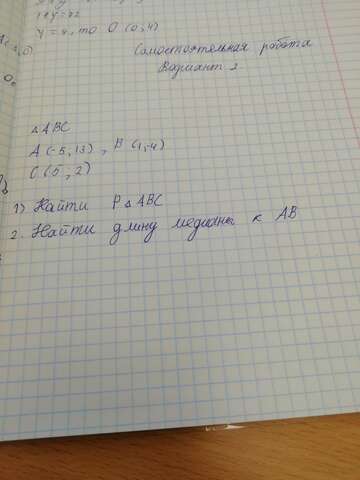 y = 4, то O (0,4)
Самостоятельная работа
Вариант 2
△ABC
A (-5,13), B (1,-4)
C (5, 2)
1) Найти P△ABC
2. Найти длину медианы к AB